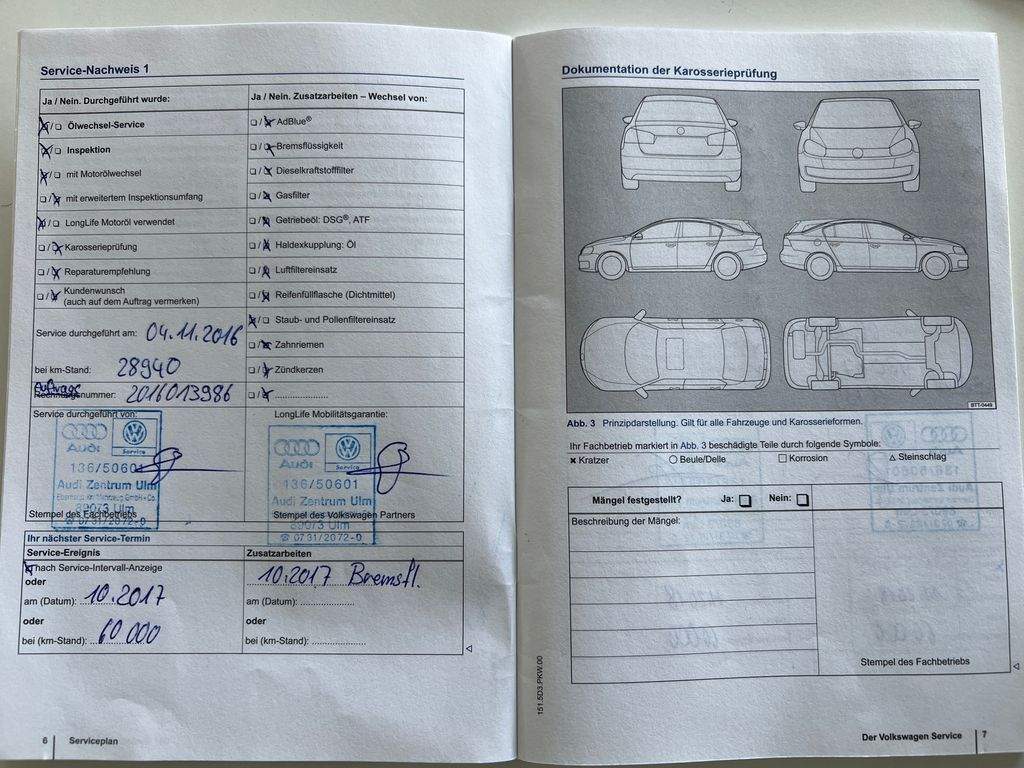 Service-Nachweis 1
Ja / Nein. Durchgeführt wurde:
Ölwechsel-Service
Inspektion
mit Motorölwechsel
mit erweitertem Inspektionsumfang
LongLife Motoröl verwendet
Karosserieprüfung
Reparaturempfehlung
Kundenwunsch
(auch auf dem Auftrag vermerken)
Service durchgeführt am: 04.11.2016
bei km-Stand: 28940
Auftrags
Rechnungsnummer: 2016013986
Ja / Nein. Zusatzarbeiten – Wechsel von:
AdBlue®
Bremsflüssigkeit
Dieselkraftstofffilter
Gasfilter
Getriebeöl: DSG®, ATF
Haldexkupplung: Öl
Luftfiltereinsatz
Reifenfüllflasche (Dichtmittel)
Staub- und Pollenfiltereinsatz
Zahnriemen
Zündkerzen
Service durchgeführt von:
Audi
Service
136/50601
Audi Zentrum Ulm
89073 Ulm
Stempel des Fachbetriebs
☎ 0731/2072-0
LongLife Mobilitätsgarantie:
Audi
Service
136/50601
Audi Zentrum Ulm
Stempel des Volkswagen Partners
89073 Ulm
☎ 0731/2072-0
Ihr nächster Service-Termin
Service-Ereignis
nach Service-Intervall-Anzeige
oder
am (Datum): 10.2017
oder
bei (km-Stand): 60 000
Zusatzarbeiten
10.2017 Bremsfl.
am (Datum):
oder
bei (km-Stand):
6 Serviceplan
Dokumentation der Karosserieprüfung
BTT-0449
Abb. 3 Prinzipdarstellung. Gilt für alle Fahrzeuge und Karosserieformen.
Ihr Fachbetrieb markiert in Abb. 3 beschädigte Teile durch folgende Symbole:
× Kratzer ○ Beule/Delle □ Korrosion △ Steinschlag
Mängel festgestellt? Ja: □ Nein: □
Beschreibung der Mängel:
Stempel des Fachbetriebs
151.5D3.PKW.00
Der Volkswagen Service 7